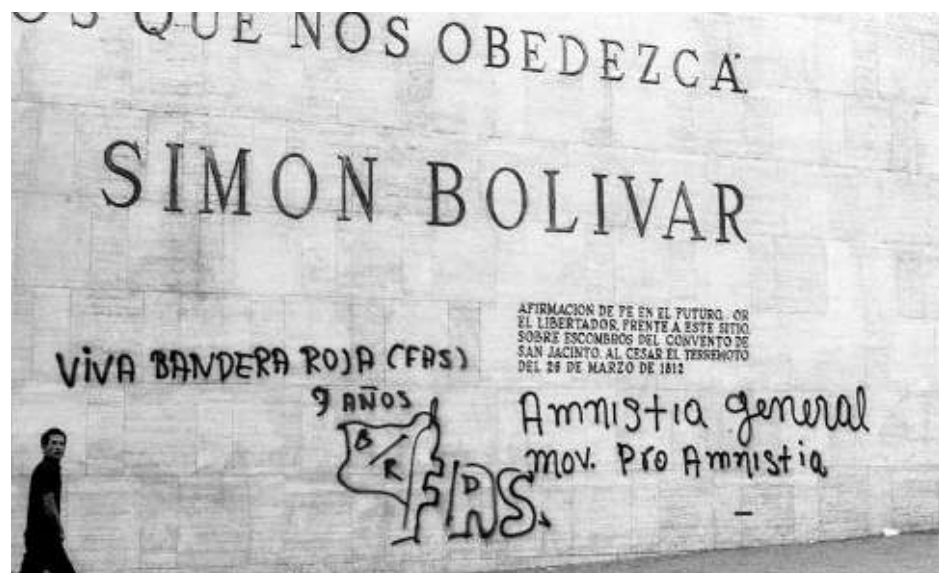 OS QUE NOS OBEDEZCA.
SIMON BOLIVAR
AFIRMACION DE FE EN EL FUTURO, OR
EL LIBERTADOR, FRENTE A ESTE SITIO,
SOBRE ESCOMBROS DEL CONVENTO DE
SAN JACINTO, AL CESAR EL TERREMOTO
DEL 26 DE MARZO DE 1812
VIVA BANDERA ROJA (FAS)
9 AÑOS
B R
FAS.
Amnistia general
mov. Pro Amnistia